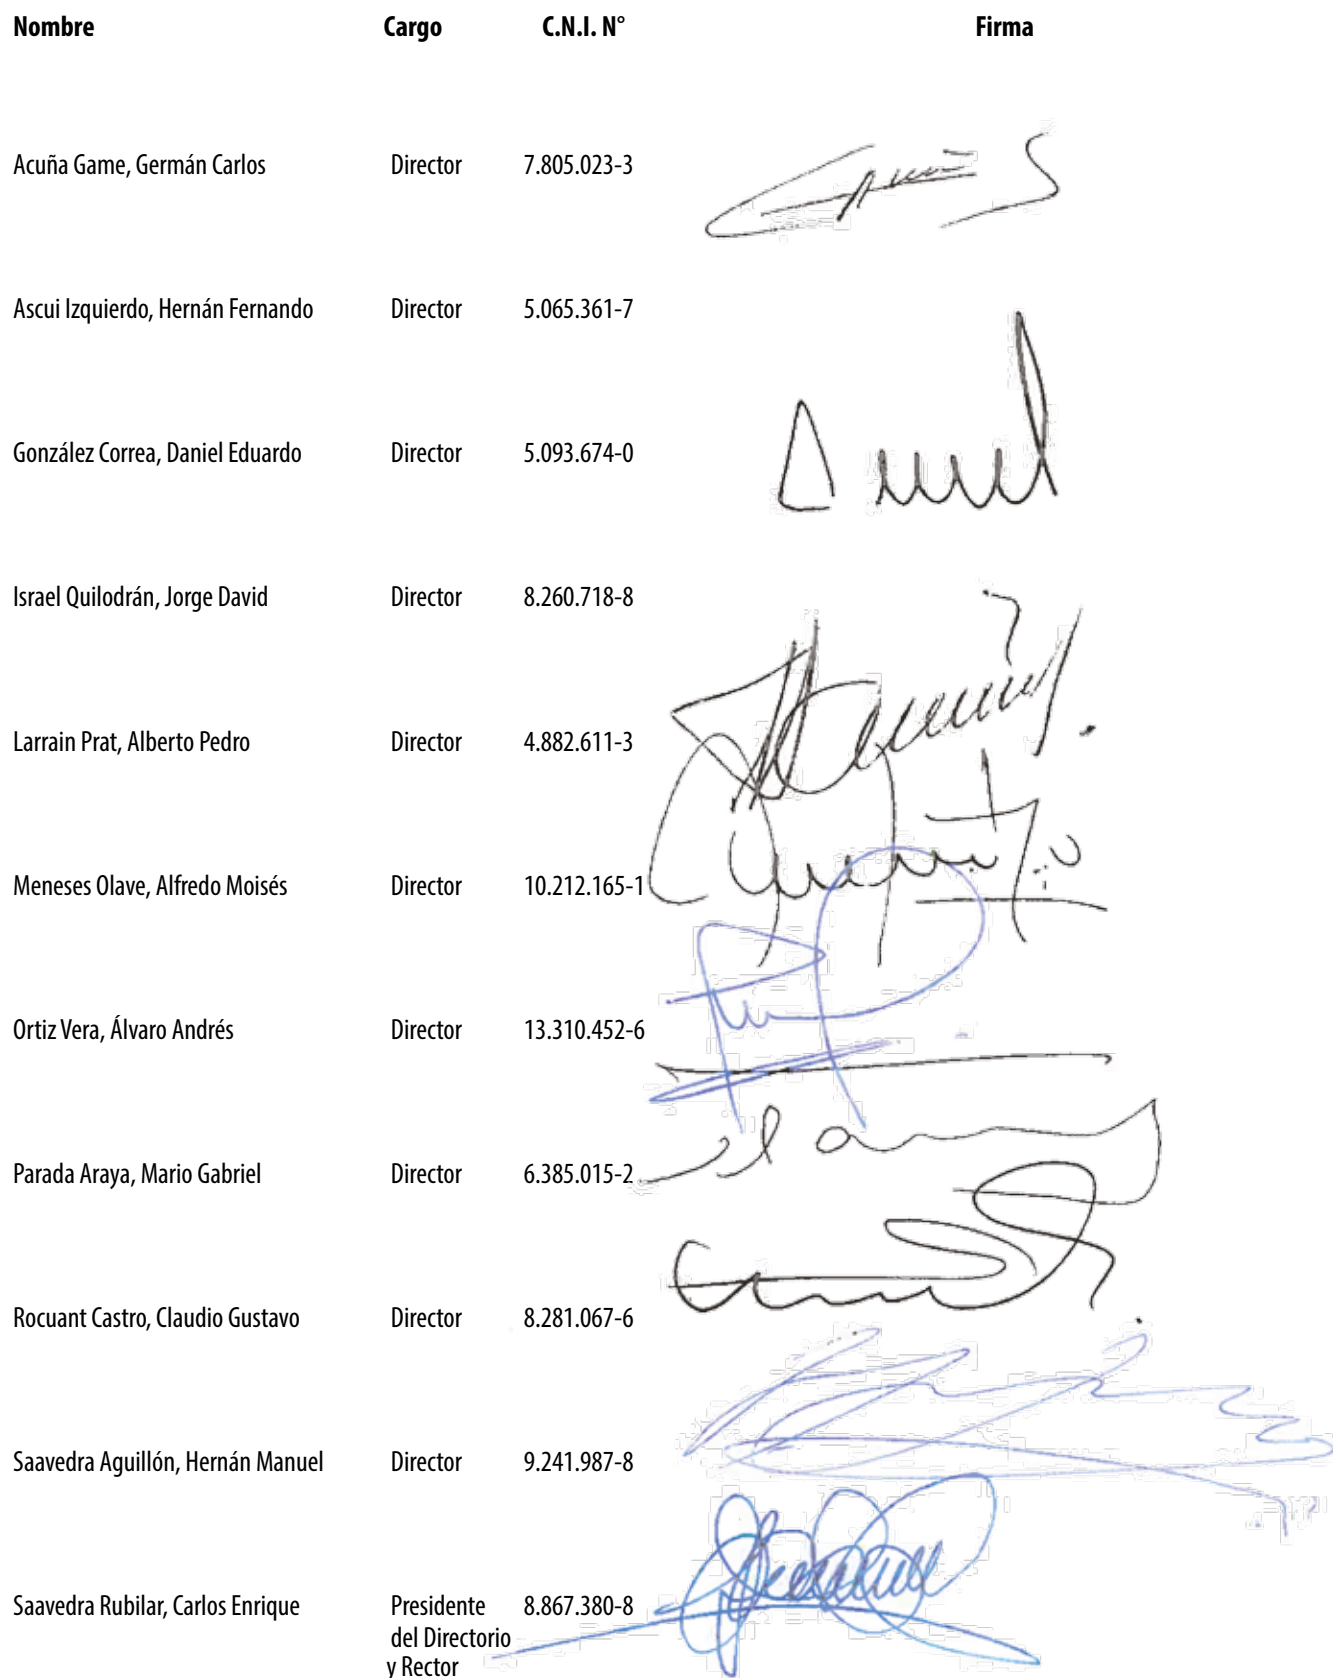 Nombre Cargo C.N.I. N° Firma
Acuña Game, Germán Carlos Director 7.805.023-3
Ascui Izquierdo, Hernán Fernando Director 5.065.361-7
González Correa, Daniel Eduardo Director 5.093.674-0
Israel Quilodrán, Jorge David Director 8.260.718-8
Larrain Prat, Alberto Pedro Director 4.882.611-3
Meneses Olave, Alfredo Moisés Director 10.212.165-1
Ortiz Vera, Álvaro Andrés Director 13.310.452-6
Parada Araya, Mario Gabriel Director 6.385.015-2
Rocuant Castro, Claudio Gustavo Director 8.281.067-6
Saavedra Aguillón, Hernán Manuel Director 9.241.987-8
Saavedra Rubilar, Carlos Enrique Presidente 8.867.380-8
del Directorio
y Rector